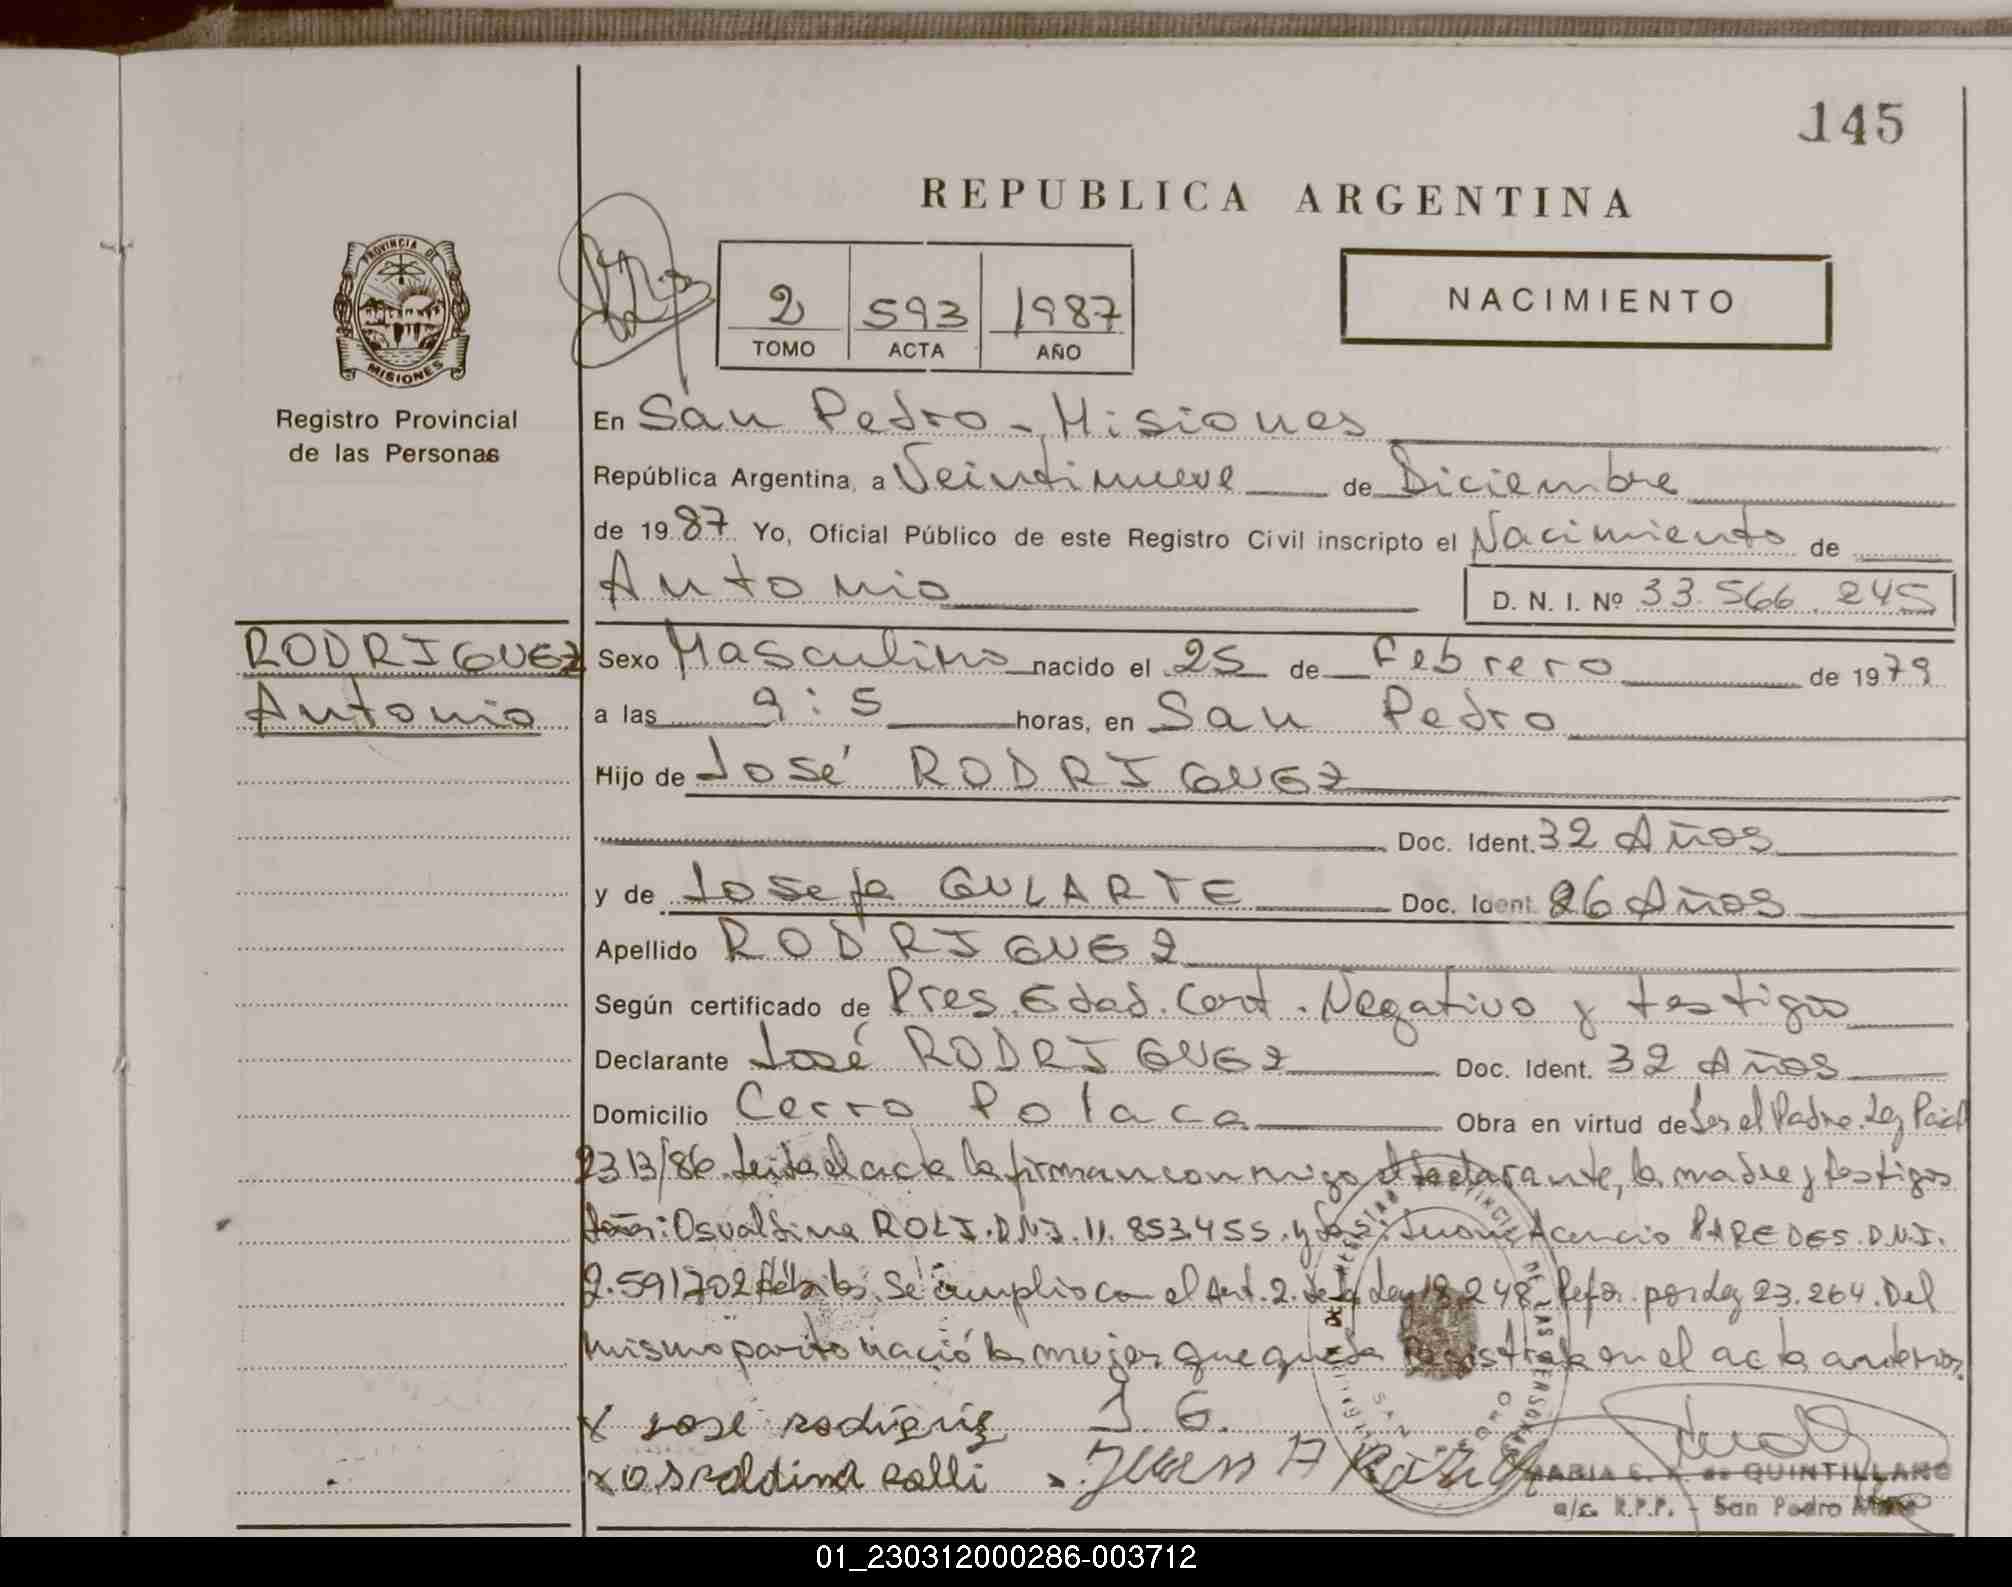 145
REPUBLICA ARGENTINA
PROVINCIA DE
MISIONES
Registro Provincial
de las Personas
2 593 1987
TOMO ACTA AÑO
NACIMIENTO
En San Pedro - Misiones
República Argentina, a Veintinueve de Diciembre
de 1987 Yo, Oficial Público de este Registro Civil inscripto el Nacimiento de
Antonio
D. N. I. Nº 33.566.245
RODRIGUEZ
Antonio
Sexo Masculino nacido el 25 de Febrero de 1979
a las 9:5 horas, en San Pedro
Hijo de José RODRIGUEZ
Doc. Ident. 32 Años
y de Josefa GULARTE Doc. Ident. 26 Años
Apellido RODRIGUEZ
Según certificado de Pres. Edad. Cert. Negativo y testigos
Declarante José RODRIGUEZ Doc. Ident. 32 Años
Domicilio Cerro Polaca Obra en virtud de Ser el Padre. Ley
2313/86. Leida el acta la firman conmigo el declarante, la madre y testigos
Osvaldina ROLI. D.N.I. 11.853.455. y Acencio PAREDES. D.N.I.
2.591702 Se cumplio con el Art. 2. de la Ley 18.248. Refor. por Ley 23.264. Del
mismo parto nació la mujer que queda registrada en el acta anterior.
x Jose rodrigriz J. G.
x osvaldina Rolli Juan A
MARIA E. de QUINTILLANO
a/c. R.P.P. - San Pedro
01_230312000286-003712